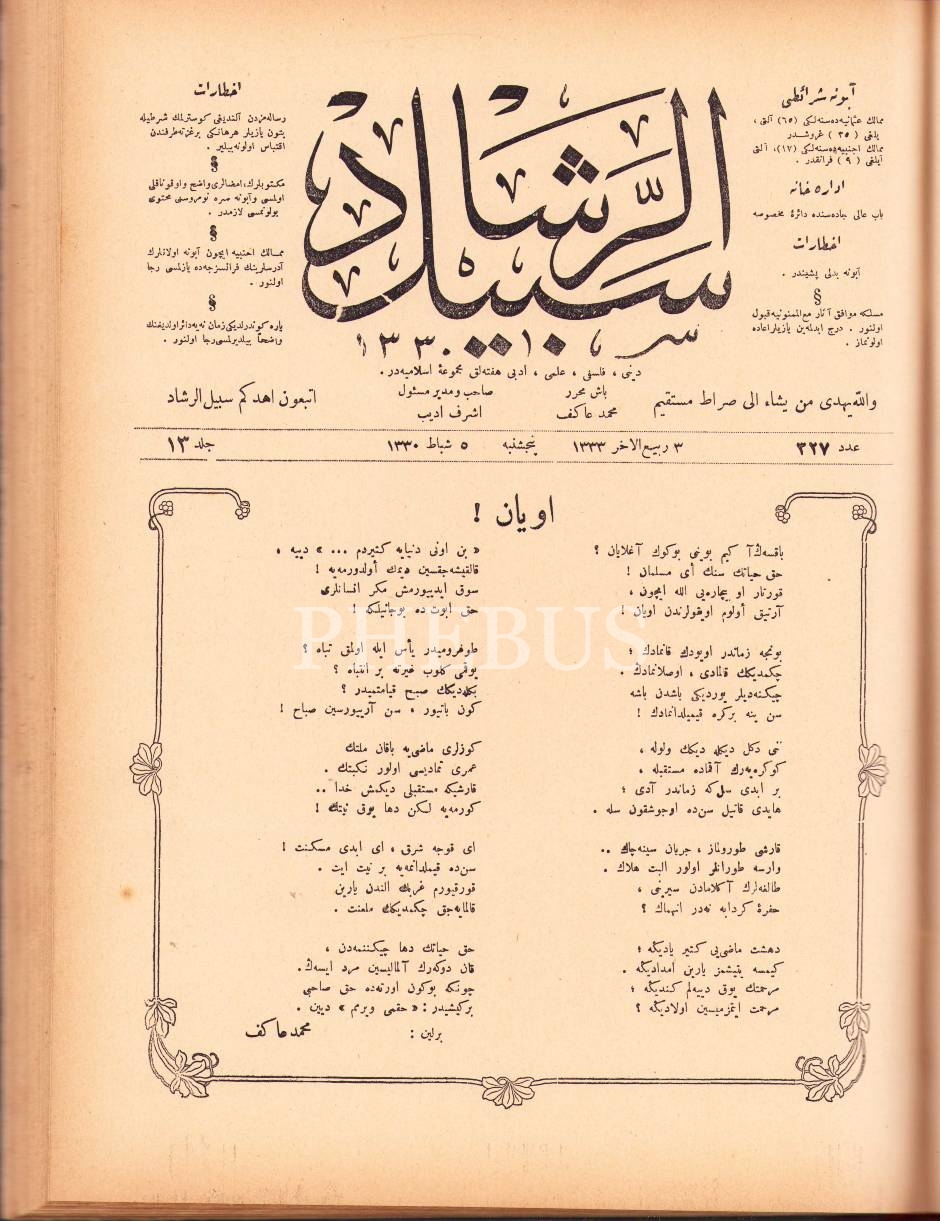 آبونه شرائطی
ممالك عثمانیه‌ده سنه‌لكی (٦٥) آلتی ،
آیلغی ( ٣٥ ) غروشدر
ممالك اجنبیه‌ده سنه‌لكی (١٧)، آلتی
آیلغی ( ٩ ) فرانقدر .
اداره خانه
باب عالی جاده‌سنده دائرهٔ مخصوصه
اخطارات
آبونه بدلی پشیندر .
§
مسلكه موافق آثار مع‌الممنونیه قبول
اولنور . درج ایدلمه‌ین یازیلر اعاده
اولونماز .
سبیل الرشاد
١٣٣٠
اخطارات
رساله‌مزدن آلندیغی كوسترلمك شرطیله
بتون یازیلر هرهانكی برغزته طرفندن
اقتباس اولونه‌بیلیر .
§
مكتوبلرك، امضالری واضح واوقوناقلی
اولمسی وآبونه صره نومروسنی محتوی
بولونمسی لازمدر .
§
ممالك اجنبیه ایچون آبونه اولانلرك
آدرسلرینك فرانسزجه‌ده یازلمسی رجا
اولنور .
§
پاره كوندرلدیكی زمان نه‌یه دائر اولدیغنك
واضحاً بیلدیرلمسی رجا اولنور .
دینی ، فلسفی ، علمی ، ادبی هفته‌لق مجموعهٔ اسلامیه‌در.
والله یهدی من یشاء الی صراط مستقیم
باش محرر
محمد عاكف
صاحب ومدیر مسئول
اشرف ادیب
اتبعون اهدكم سبیل الرشاد
عدد ٣٢٧
٣ ربیع الاخر ١٣٣٣
پنجشنبه
٥ شباط ١٣٣٠
جلد ١٣
اویان !
باقسه‌ڭ آ كیم بوینی بوكوك آغلایان ؟
حق حیاتك سنك أی مسلمان !
قورتار او بیچاره‌یی الله ایچون ،
آرتیق أولوم اویقولرندن اویان !
بونجه زماندر اویودك قانمادك ؛
چكمدیكك قالمادی ، اوصلانمادك .
چیكنه‌دیلر یوردیكی باشدن باشه
سن ینه بركره قیمیلدانمادك !
نی دكل دیكله دیكك ولوله ،
كوكره‌یه‌رك آقماده مستقبله ،
بر ابدی سل‌كه زماندر آدی ؛
هایدی قاتیل سن‌ده اوجوشقون سله .
قارشی طورولماز ، جریان سینه‌چاك ..
وارسه طورانلر اولور البت هلاك .
طالغه‌لرك آكلامادن سیرینی ،
حفرهٔ كردابه نه‌در انهماك ؟
دهشت ماضی‌یی كتیر یادیكه ؛
كیمسه یتیشمز یارین امدادیكه .
مرحمتك یوق دییه‌لم كندیكه ؛
مرحمت ایتمزمیسین اولادیكه ؟
« بن اونی دنیایه كتیردم ... » دییه ،
قالقیشه‌جقسین دیمك أولدورمه‌یه !
سوق ایدییورمش مكر انسانلری
حق ابوت ده بوجانیلكه !
طوغرومیدر یأس ایله اولمق تباه ؟
یوقمی كلوب غیرته بر انتباه ؟
بكله‌دیكك صبح قیامتمیدر ؟
كون باتیور ، سن آرییورسین صباح !
كوزلری ماضی‌یه باقان ملتك
عمری تمادیسی اولور نكبتك .
قارشیكه مستقبلی دیكمش خدا ..
كورمه‌یه لكن دها یوق نیتك !
ای قوجه شرق ، ای ابدی مسكنت !
سن‌ده قیملدانمه‌یه بر نیت ایت .
قورقیورم غربك الندن یارین
قالمایه‌جق چكمدیكك ملعنت .
حق حیاتك دها چیكننمه‌دن ،
قان دوكه‌رك آلمالیسین مرد ایسه‌ڭ.
چونكه بوكون اورته‌ده حق صاحبی
بركیشیدر : « حقمی ویرمم » دیین .
برلین :
محمد عاكف
PHEBUS